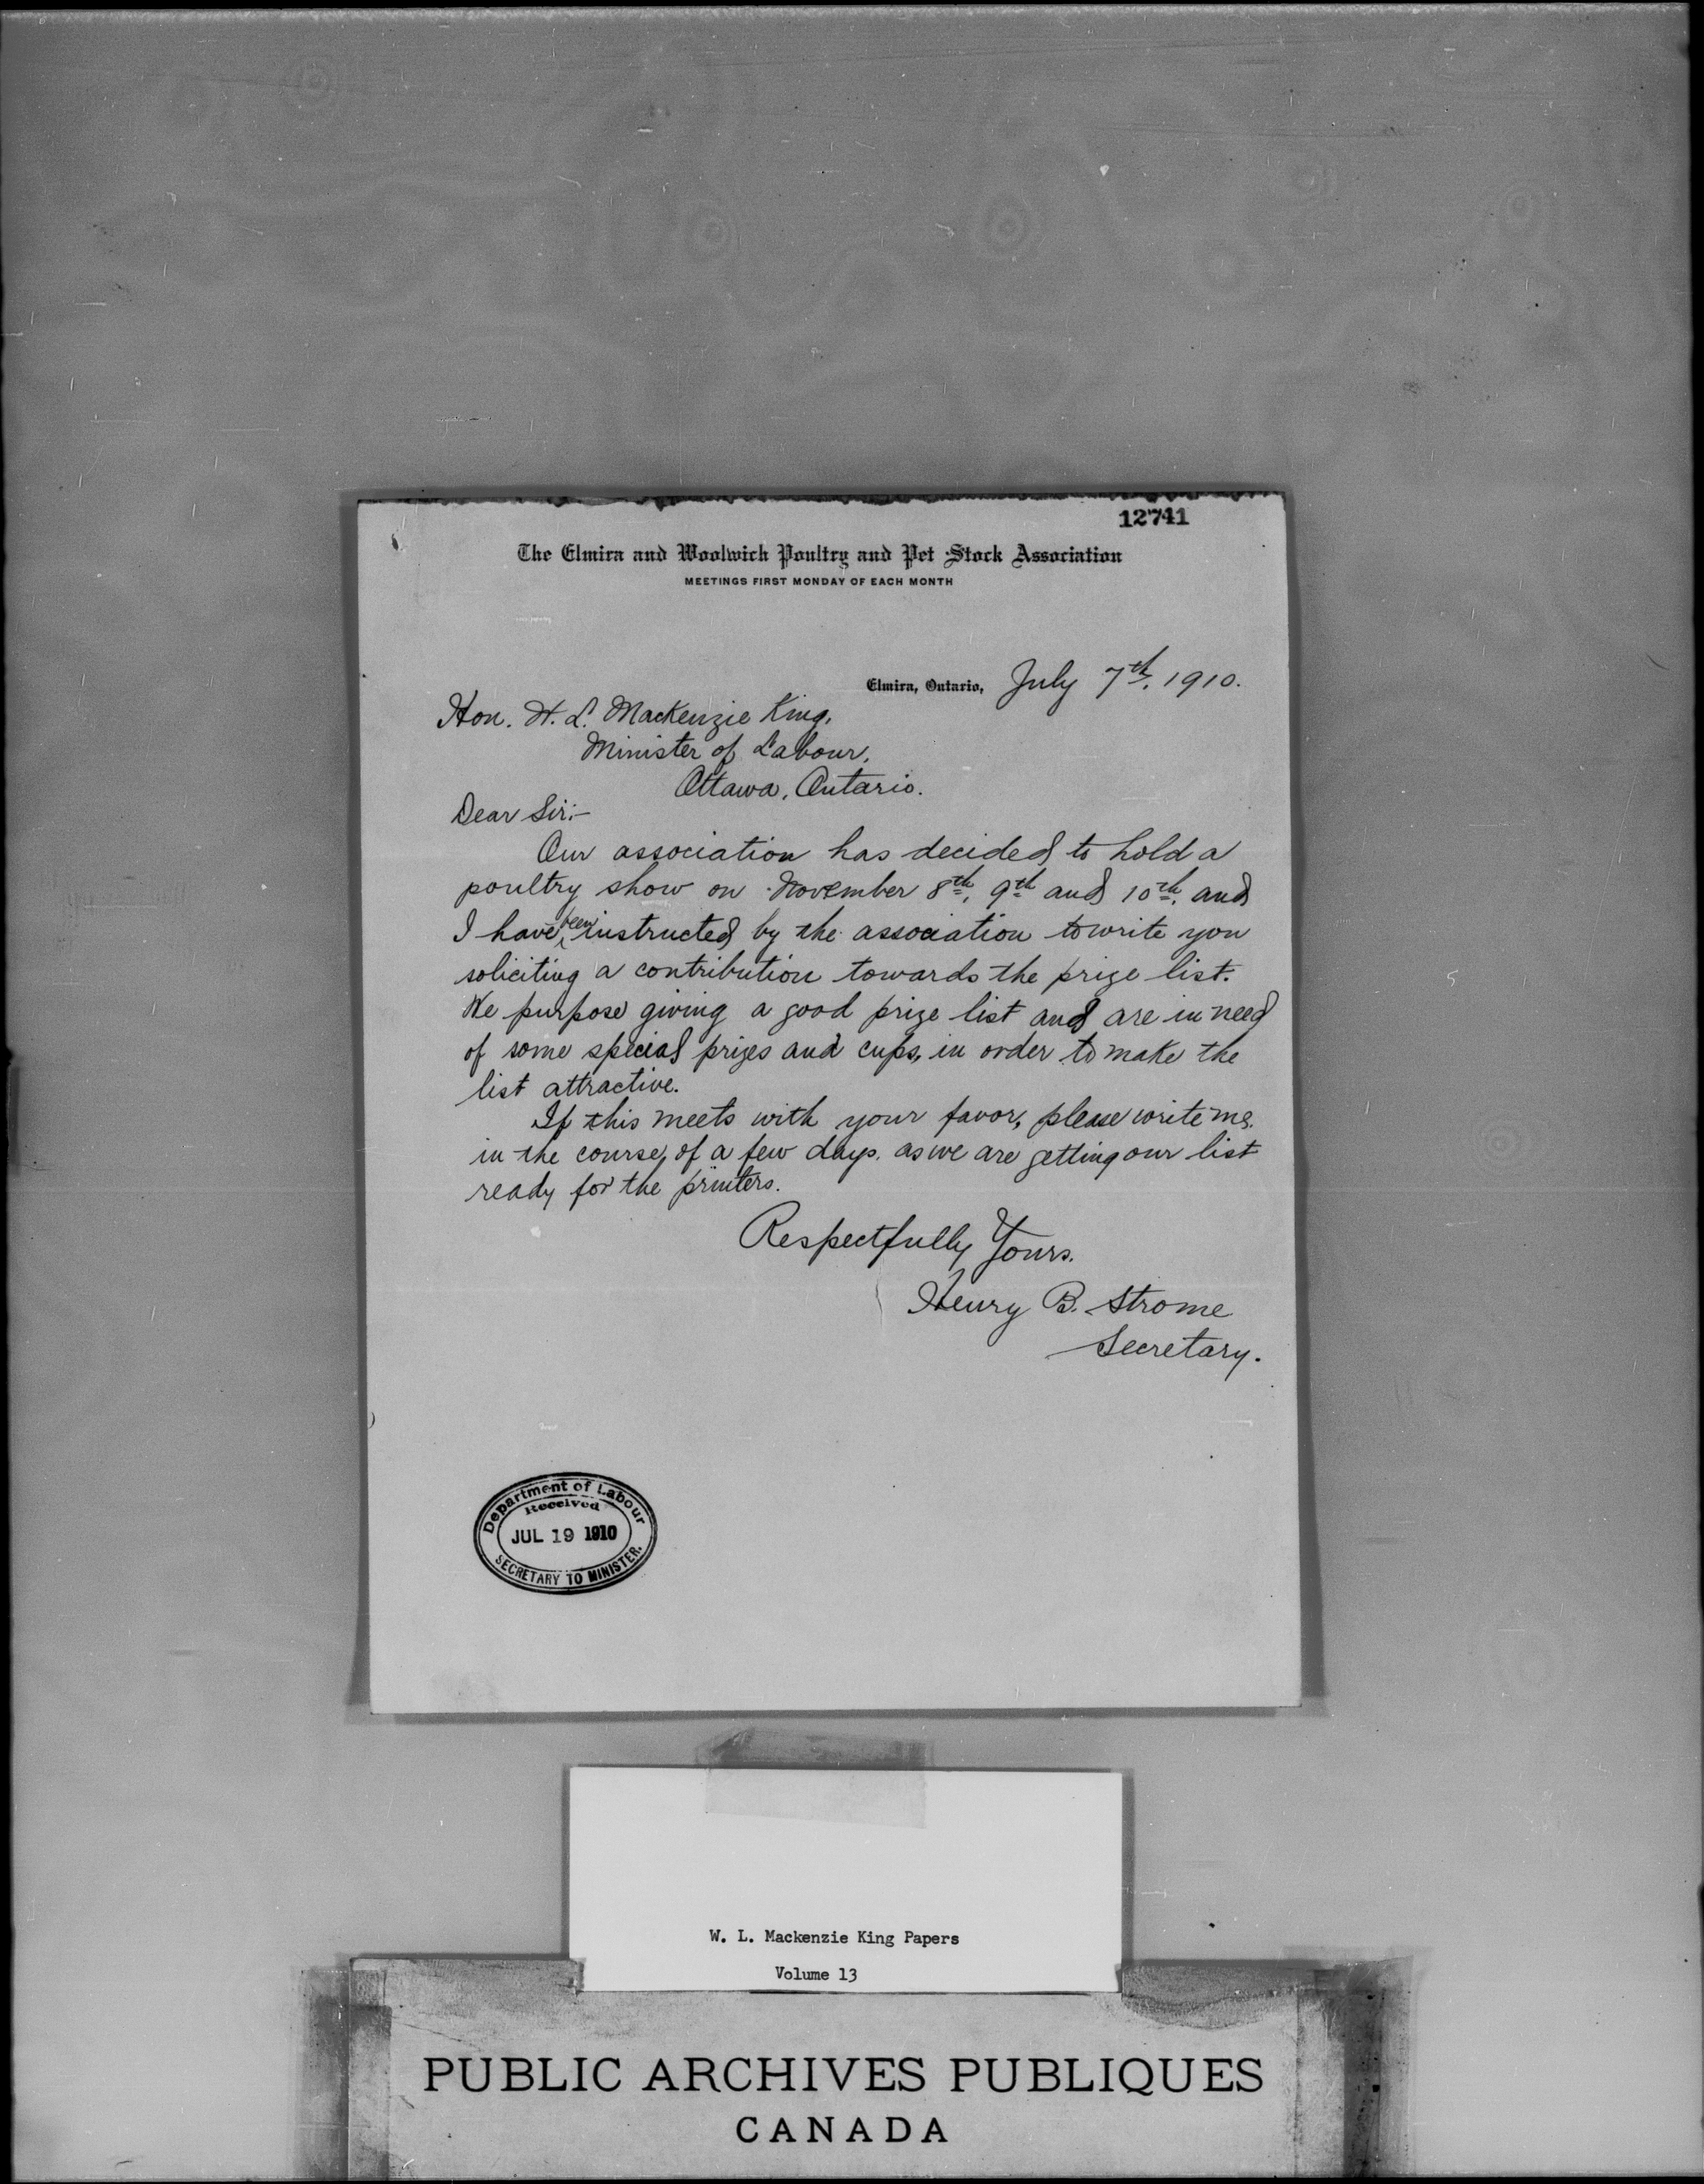 12741
The Elmira and Woolwich Poultry and Pet Stock Association
MEETINGS FIRST MONDAY OF EACH MONTH
Elmira, Ontario, July 7th, 1910.
Hon. W. L. Mackenzie King,
Minister of Labour,
Ottawa, Ontario.
Dear Sir:-
Our association has decided to hold a
poultry show on November 8th, 9th and 10th, and
I have been instructed by the association to write you
soliciting a contribution towards the prize list.
We purpose giving a good prize list and are in need
of some special prizes and cups, in order to make the
list attractive.
If this meets with your favor, please write me,
in the course, of a few days, as we are getting our list
ready for the printers.
Respectfully Yours.
Henry B. Strome
Secretary.
Department of Labour
Received
JUL 19 1910
SECRETARY TO MINISTER.
W. L. Mackenzie King Papers
Volume 13
PUBLIC ARCHIVES PUBLIQUES
CANADA